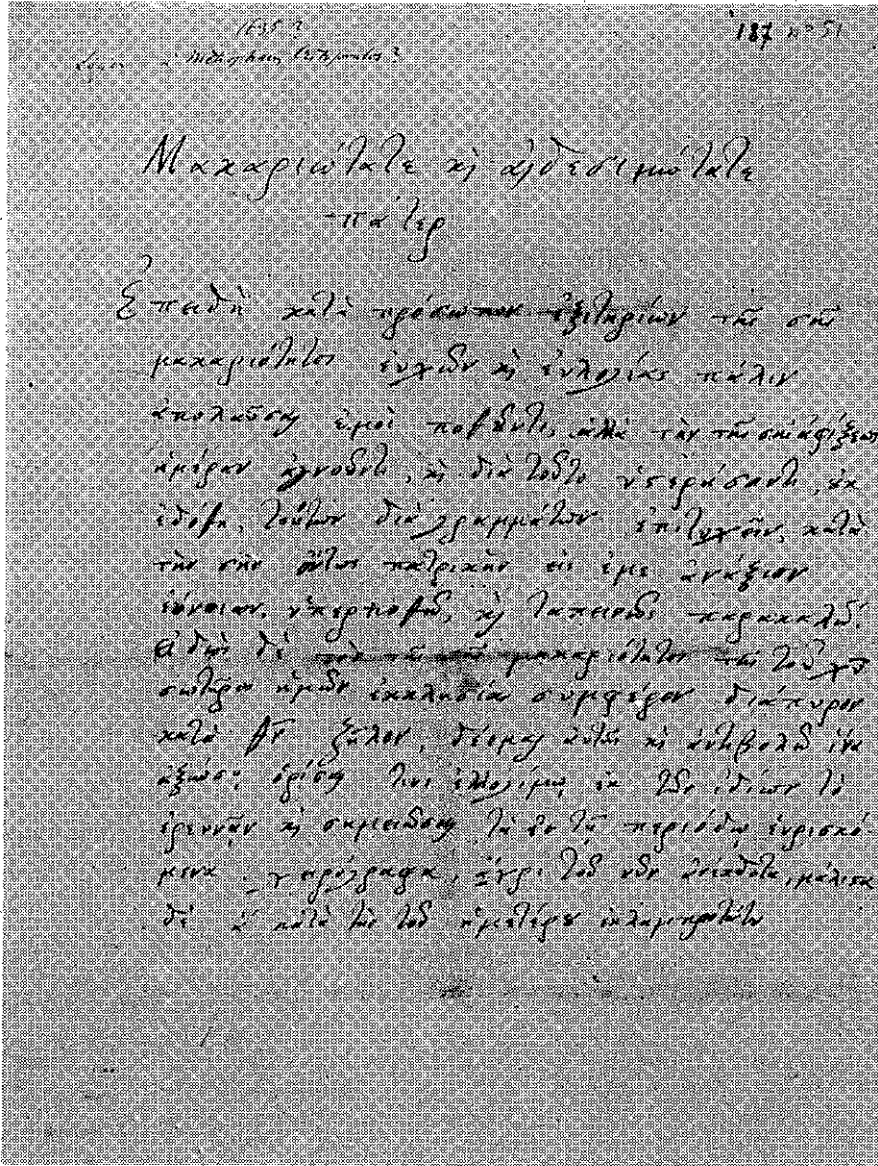 1635?
187 nº 51
Μακαριώτατε κὶ αἰδεσιμώτατε
πάτερ
Ἐπειδὴ κατὰ πρόσωπον ἐξιτηρίων τῆς σῆς
μακαριότητος εὐχῶν κὶ εὐλογίας πάλιν
ἀπολαῦσαι ἐμοὶ ποθοῦντι, ἀλλὰ τὴν τῆς σῆς ἀφίξεως
ἡμέραν ἀγνοοῦντι, κὶ διὰ τοῦτο ὑστεράσαντι, οὐκ
ἐδόθη, τούτων διὰ γραμμάτων ἐπιτυχεῖν, κατὰ
τὴν σὴν ὄντως πατρικὴν εἰς ἐμὲ ἀνάξιον
εὔνοιαν, ὑπερποθῶ, κὶ ταπεινῶς παρακαλῶ.
εἰδὼς δὲ μακαριότητος τῇ τοῦ χυ
σωτῆρος ἡμῶν ἐκκλησίᾳ συμφέρον διάπυρον
κατὰ θν ζῆλον, δέομαι αὐτῆς κὶ ἀντιβολῶ ἵνα
ἀξιώσῃ ὁρίσαι τινι ἐλλογίμῳ ἐκ τῶν ἰδίων τὸ
ἐρευνᾷν κὶ σημειῶσαι τὰ ἐν τῇ περιόδῳ εὑρισκό-
μενα χειρόγραφα, ἄχρι τοῦ νῦν ἀνέκδοτα, μάλιστα
δὲ κατὰ τὴν τοῦ ἡμετέρου ἐκλαμπροτάτου